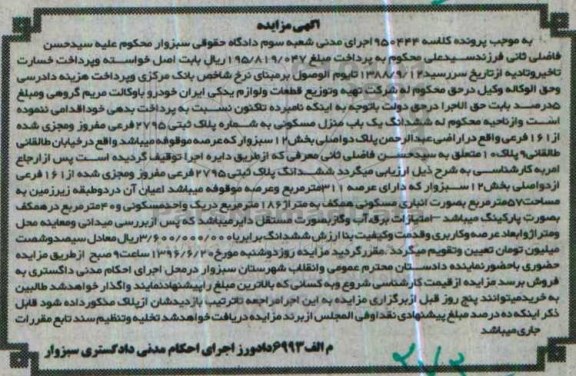 آگهی مزایده
به موجب پرونده کلاسه ۹۵۰۴۴۴ اجرای مدنی شعبه سوم دادگاه حقوقی سبزوار محکوم علیه سیدحسن
فاضلی ثانی فرزند سیدعلی محکوم به پرداخت مبلغ ۱۹۵/۸۱۹/۰۴۷ ریال بابت اصل خواسته وپرداخت خسارت
تاخیر وتادیه از تاریخ سررسید ۱۳۸۸/۹/۱۲ تایوم الوصول برمبنای نرخ شاخص بانک مرکزی وپرداخت هزینه دادرسی
وحق الوکاله وکیل درحق محکوم له شرکت تهیه وتوزیع قطعات ولوازم یدکی ایران خودرو باوکالت مریم گروهی ومبلغ
۵درصد بابت حق الاجرا درحق دولت باتوجه به اینکه نامبرده تاکنون نسبت به پرداخت بدهی خوداقدامی ننموده
است وازناحیه محکوم له ششدانگ یک باب منزل مسکونی به شماره پلاک ثبتی ۲۷۹۵ فرعی مفروز ومجزی شده
از ۱۶۱ فرعی واقع دراراضی عبدالرحمن پلاک دواصلی بخش ۱۲ سبزوار که عرصه موقوفه میباشد واقع درخیابان طالقانی
طالقانی ۹ پلاک ۱۰ متعلق به سیدحسن فاضلی ثانی معرفی که ازطریق دایره اجرا توقیف گردیده است پس ازارجاع
امربه کارشناسی به شرح ذیل ارزیابی میگردد ششدانگ پلاک ثبتی ۲۷۹۵ فرعی مفروز ومجزی شده از ۱۶۱ فرعی
ازدواصلی بخش ۱۲ سبزوار که دارای عرصه ۳۱۰مترمربع وعرصه موقوفه میباشد اعیان آن دردوطبقه زیرزمین به
مساحت ۵۷مترمربع بصورت انباری مسکونی همکف به متراژ ۱۸۶مترمربع دریک واحدمسکونی و ۴۰مترمربع درهمکف
بصورت پارکینگ میباشد - امتیازات برق آب وگاز بصورت مستقل دایر میباشد که پس از بررسی میدانی ومعاینه محل
ومتراژ وابعاد عرصه وکاربری وقدمت وکیفیت بنا ارزش ششدانگ برابر با ۳/۶۰۰/۰۰۰/۰۰۰ ریال معادل سیصدوشصت
میلیون تومان تعیین وتقویم میگردد. مقررگردید مزایده روزدوشنبه مورخ ۱۳۹۶/۶/۲۰ ساعت ۹ صبح ازطریق مزایده
حضوری باحضورنماینده دادستان محترم عمومی وانقلاب شهرستان سبزوار درمحل اجرای احکام مدنی دادگستری به
فروش برسد مزایده ازقیمت کارشناسی شروع وبه کسانی که بالاترین مبلغ راپیشنهادنمایند واگذار خواهدشد طالبین
به خریدمیتوانند پنج روز قبل ازبرگزاری مزایده به این اجرا مراجعه تاترتیب بازدیدشان ازپلاک مذکورداده شود قابل
ذکر اینکه ده درصد مبلغ پیشنهادی نقداوفی المجلس ازبرنده مزایده دریافت خواهدشد تخلیه وتنظیم سند تابع مقررات
جاری میباشد
م الف ۶۹۹۳ دادورز اجرای احکام مدنی دادگستری سبزوار